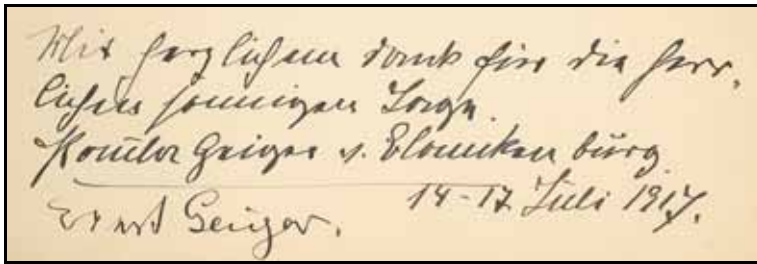 Mit herzlichem Dank für die herr-
lichen sonnigen Tage.
Geiger v. Blanckenburg
14-17. Juli 1917.
Ernst Geiger.